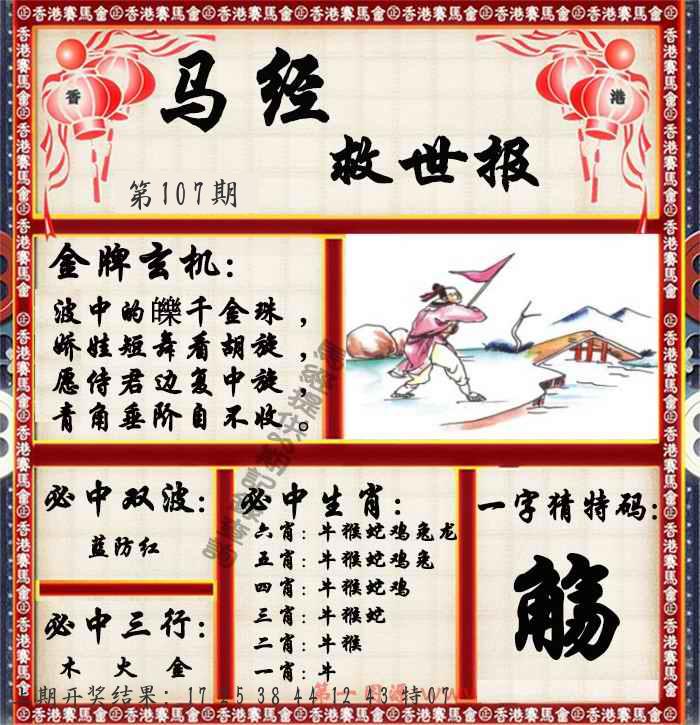 香港賽馬會
香
港
马经
救世报
第107期
金牌玄机:
波中的皪千金珠，
娇娃短舞看胡旋，
愿侍君边复中旋，
青角垂阶自不收。
必中双波:
蓝防红
必中三行:
木 火 金
必中生肖:
六肖: 牛猴蛇鸡兔龙
五肖: 牛猴蛇鸡兔
四肖: 牛猴蛇鸡
三肖: 牛猴蛇
二肖: 牛猴
一肖: 牛
一字猜特码:
觞
期开奖结果: 17 5 38 44 12 43 特07